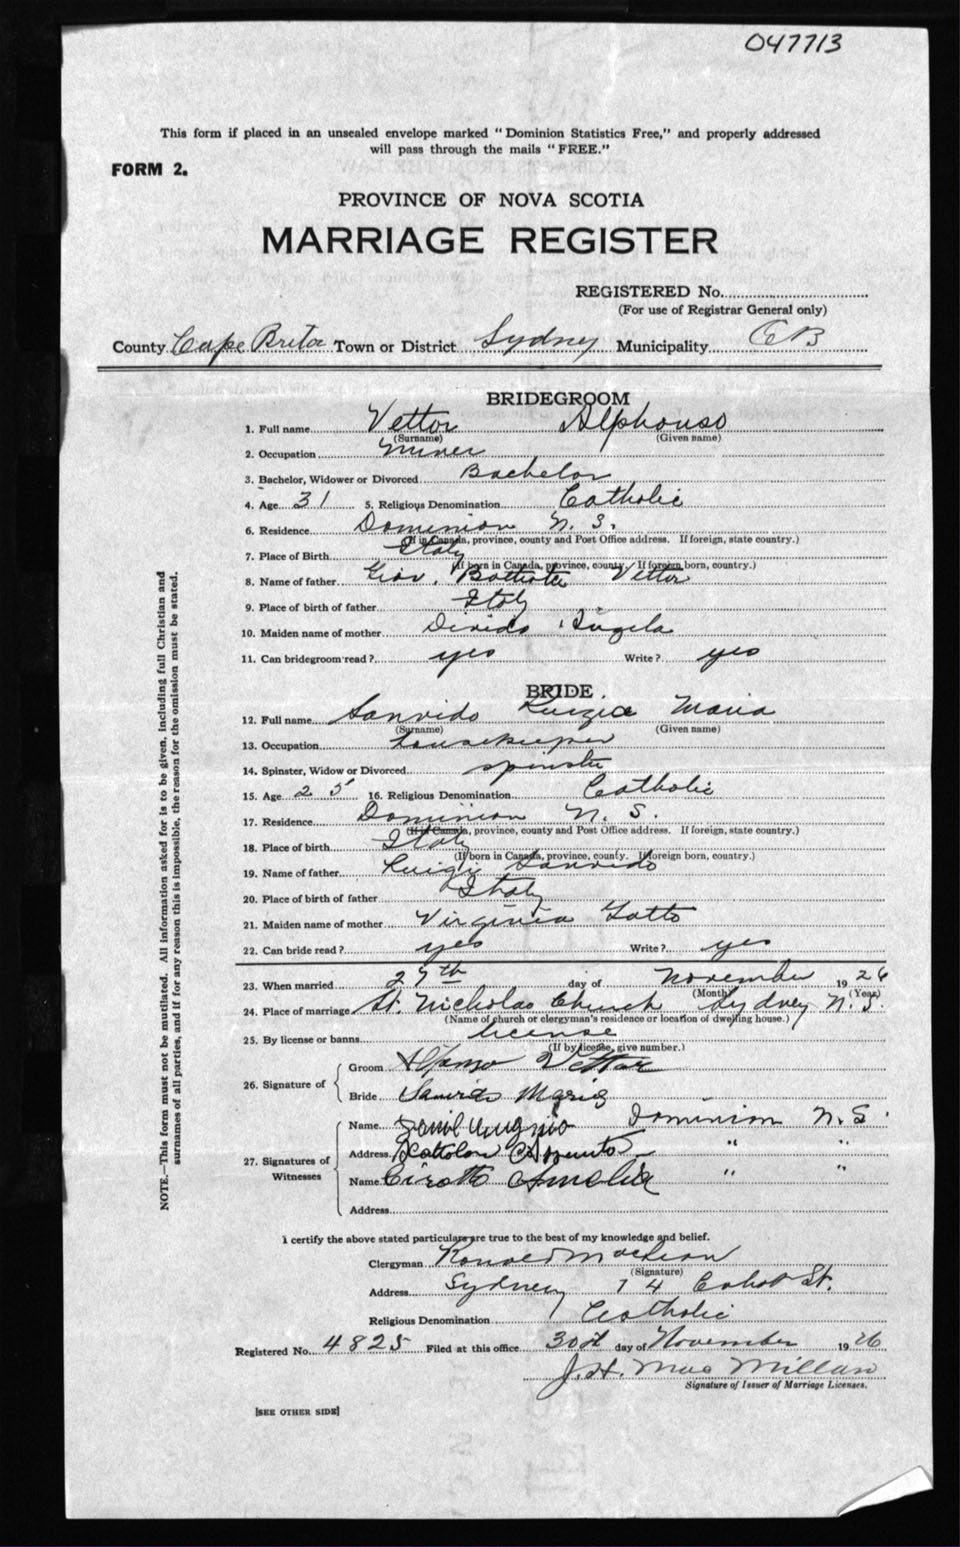 047713
This form if placed in an unsealed envelope marked "Dominion Statistics Free," and properly addressed
will pass through the mails "FREE."
FORM 2.
PROVINCE OF NOVA SCOTIA
MARRIAGE REGISTER
REGISTERED No.
(For use of Registrar General only)
County Cape Breton Town or District Sydney Municipality CB
BRIDEGROOM
1. Full name Vettor Alphonso
(Surname) (Given name)
2. Occupation Miner
3. Bachelor, Widower or Divorced Bachelor
4. Age 31 5. Religious Denomination Catholic
6. Residence Dominion N. S.
(If in Canada, province, county and Post Office address. If foreign, state country.)
7. Place of Birth Italy
(If born in Canada, province, county. If foreign born, country.)
8. Name of father Giov. Battista Vettor
9. Place of birth of father Italy
10. Maiden name of mother Angela
11. Can bridegroom read? yes Write? yes
BRIDE
12. Full name Sanvido Luigia Maria
(Surname) (Given name)
13. Occupation housekeeper
14. Spinster, Widow or Divorced spinster
15. Age 25 16. Religious Denomination Catholic
17. Residence Dominion N. S.
(If in Canada, province, county and Post Office address. If foreign, state country.)
18. Place of birth Italy
(If born in Canada, province, county. If foreign born, country.)
19. Name of father Luigi Sanvido
20. Place of birth of father Italy
21. Maiden name of mother Virginia Gatto
22. Can bride read? yes Write? yes
23. When married 27th day of November 1926
(Month) (Year)
24. Place of marriage St. Nicholas Church Sydney N. S.
(Name of church or clergyman's residence or location of dwelling house.)
25. By license or banns license
(If by license, give number.)
26. Signature of
Groom Alfonso Vettor
Bride Sanvido Maria
27. Signatures of Witnesses
Name Dominion N. S.
Address " "
Name Amelia " "
Address
I certify the above stated particulars are true to the best of my knowledge and belief.
Clergyman Ronald MacLean
(Signature)
Address Sydney 74 Cabot St.
Religious Denomination Catholic
Registered No. 4825 Filed at this office 30th day of November 1926
J. H. MacMillan
Signature of Issuer of Marriage Licenses.
[SEE OTHER SIDE]
NOTE.—This form must not be mutilated. All information asked for is to be given, including full Christian and
surnames of all parties, and if for any reason this is impossible, the reason for the omission must be stated.